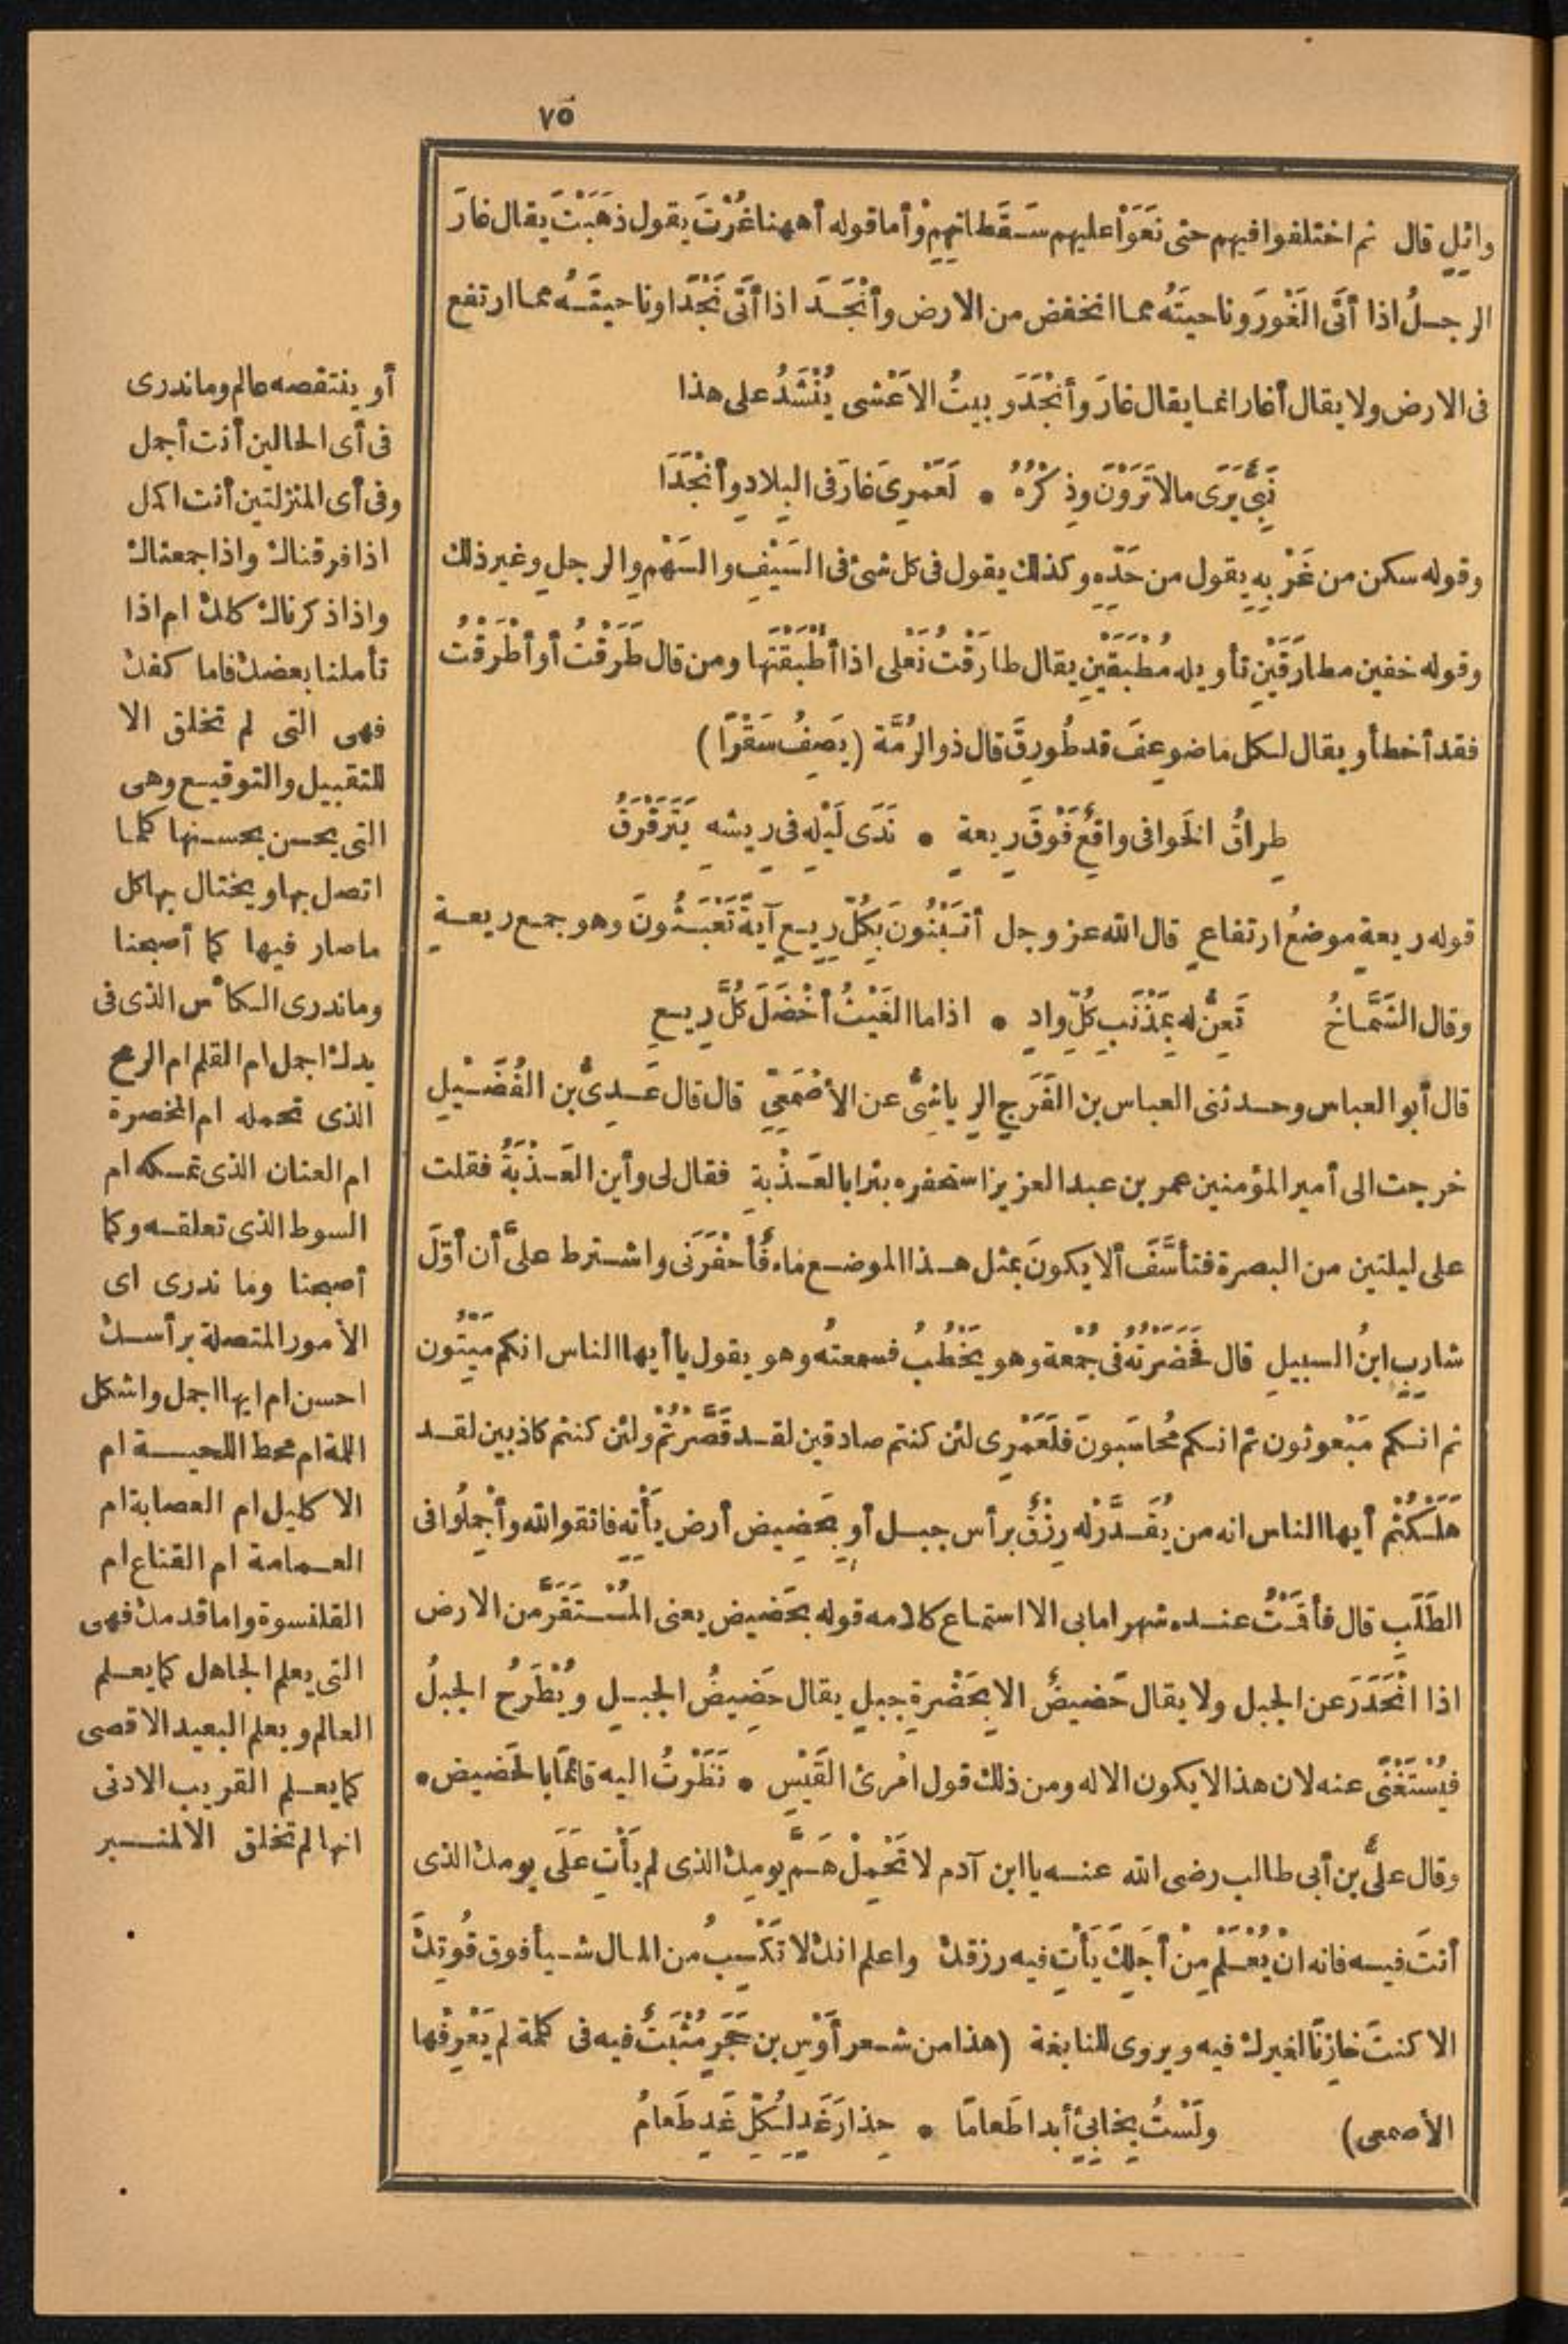 ٧٥
وائِلٍ قال ثم اختلفوا فيهم حتى نَعَوْا عليهم سَقَطاتِهِمْ وأما قوله أههنا غُرْتَ يقول ذهَبْتَ يقال غارَ
الرجلُ اذا أتَى الغَوْرَ وناحيتَهُ مما انخفض من الارض وأنْجَدَ اذا أتَى نَجْدًا وناحيتَهُ مما ارتفع
فى الارض ولا يقال أغار انما يقال غارَ وأنْجَدَ وبيتُ الاَعْشى يُنْشَدُ على هذا
نَبِىٌّ يَرَى مالا تَرَوْنَ وذِكْرُهُ • لَعَمْرِى غارَ فى البِلادِ وأنْجَدَا
وقوله سكن من غَرْبِهِ يقول من حَدِّهِ وكذلك يقول فى كل شئ فى السَيْفِ والسَهْمِ والرجلِ وغير ذلك
وقوله خفين مطارَقَيْنِ تأويله مُطْبَقَيْنِ يقال طارَقْتُ نَعْلى اذا أطْبَقْتَها ومن قال طَرَقْتُ أو أطْرَقْتُ
فقد أخطأ ويقال لكل ما ضوعِفَ قد طُورِقَ قال ذو الرُمَّة (يَصِفُ سَقْرًا)
طِراقُ الخَوافى واقعٌ فَوْقَ رِيعةٍ • نَدَى لَيْلِهِ فى رِيشِهِ يَتَرَقْرَقُ
قوله رِيعةٍ موضعُ ارتفاعٍ قال الله عز وجل أتَبْنُونَ بِكُلِّ رِيعٍ آيةً تَعْبَثُونَ وهو جمع رِيعةٍ
وقال الشَمَّاخُ تَعِنُّ له بِمَذْنَبِ كُلِّ وادٍ • اذا ما الغَيْثُ أخْضَلَ كُلَّ رِيعِ
قال أبو العباس وحدثنى العباس بن الفَرَجِ الرِياشِىُّ عن الأصْمَعِىِّ قال قال عَدِىُّ بن الفُضَيْلِ
خرجت الى أمير المؤمنين عمر بن عبد العزيز استحفره بئرا بالعَذْبةِ فقال لى وأين العَذْبَةُ فقلت
على ليلتين من البصرة فتأسَّفَ ألا يكونَ بمثل هذا الموضع ماء فأحْفَرَنى واشترط علىَّ أن أوّلَ
شارِبٍ ابنُ السبيلِ قال فحَضَرْتُه فى جُمْعة وهو يَخْطُبُ فسمعتُه وهو يقول يا أيها الناس انكم مَيِّتُون
ثم انكم مَبْعوثون ثم انكم مُحاسَبونَ فلَعَمْرِى لئن كنتم صادقين لقد قَصَّرْتُمْ ولئن كنتم كاذبين لقد
هَلَكْتُمْ أيها الناس انه من يُقَدَّرْ له رِزْقٌ برأس جبل أو بحَضِيض أرض يَأْتِهِ فاتقوا الله وأجْمِلُوا فى
الطَلَبِ قال فأقَمْتُ عنده شهرا ما بى الا استماع كلامه قوله بحَضيض يعنى المُسْتَقَرَّ من الارض
اذا انْحَدَرَ عن الجبل ولا يقال حَضيضٌ الا بحَضْرةِ جبلٍ يقال حَضِيضُ الجبلِ ويُطْرَحُ الجبلُ
فيُسْتَغْنَى عنه لان هذا لا يكون الا له ومن ذلك قول امْرِئ القَيْسِ • نَظَرْتُ اليه قائمًا بالحَضيض •
وقال علىُّ بن أبى طالب رضى الله عنه يا ابن آدم لا تَحْمِلْ هَمَّ يومِكَ الذى لم يَأْتِ عَلَى يومِك الذى
أنتَ فيه فانه انْ يُعْلَمْ مِنْ أجَلِكَ يَأْتِ فيه رزقك واعلم انك لا تَكْسِبُ من المال شيأ فوق قُوتِكَ
الا كنتَ خازِنًا لغيرك فيه ويروى للنابغة (هذا من شعر أوْسِ بن حَجَرٍ مُثْبَتٌ فيه فى كلمة لم يَعْرِفْها
الأصمعى) ولَسْتُ بِخابِئٍ أبدا طَعامًا • حِذارَ غَدٍ لِكُلِّ غَدٍ طَعامُ
أو ينتقصه عالم وما ندرى
فى أى الحالين أنت أجمل
وفى أى المنزلتين أنت اكمل
اذا فرقناك واذا جمعناك
واذا ذكرناك كلك ام اذا
تأملنا بعضك فاما كفك
فهى التى لم تخلق الا
للتقبيل والتوقيع وهى
التى يحسن بحسنها كلما
اتصل بها ويختال بها كل
ما صار فيها كما أصبحنا
وما ندرى الكأس الذى فى
يدك اجمل ام القلم ام الرمح
الذى تحمله ام المخصرة
ام العنان الذى تمسكه ام
السوط الذى تعلقه وكما
أصبحنا وما ندرى اى
الأمور المتصلة برأسك
احسن ام ايها اجمل واشكل
اللمة ام محط اللحية ام
الاكليل ام العصابة ام
العمامة ام القناع ام
القلنسوة واما قدمك فهى
التى يعلم الجاهل كما يعلم
العالم ويعلم البعيد الاقصى
كما يعلم القريب الادنى
انها لم تخلق الا لمنبر